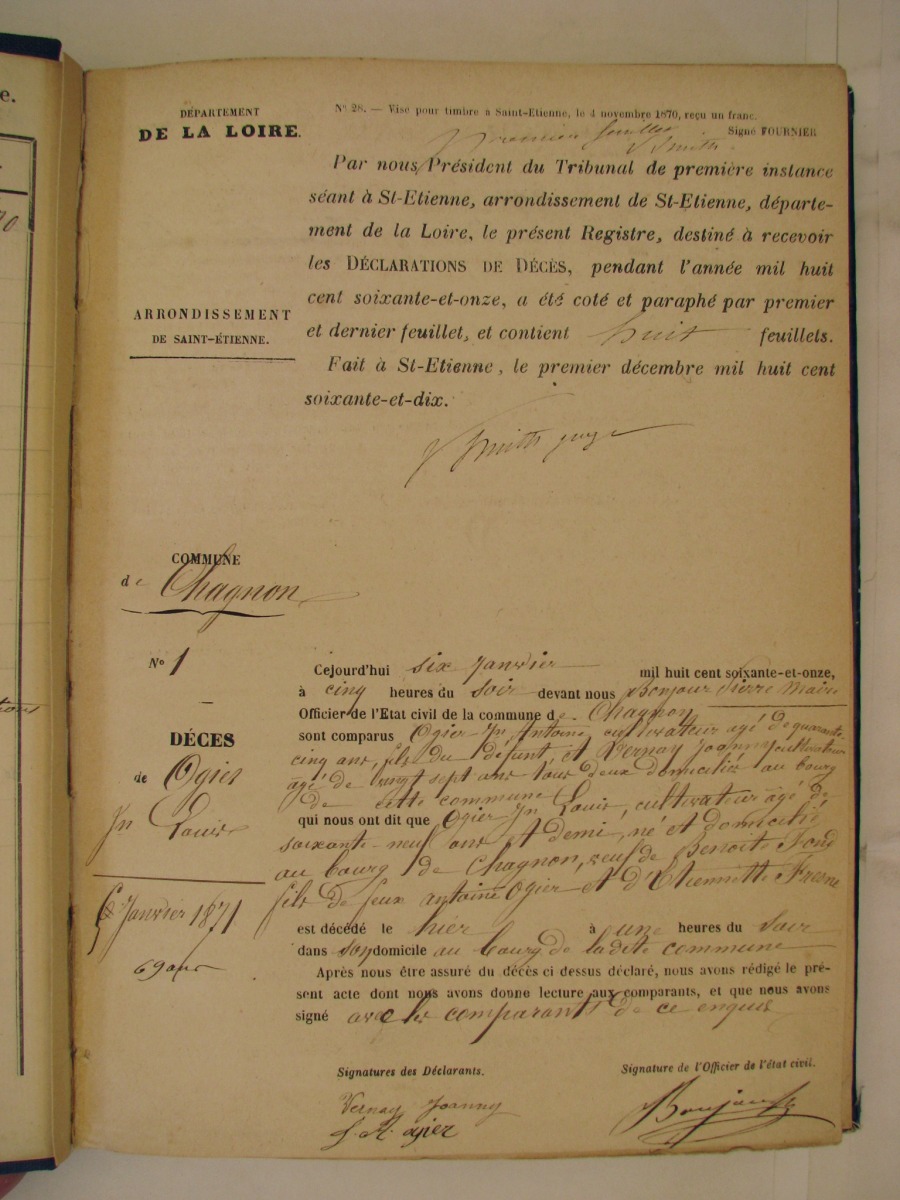 e.
DÉPARTEMENT
DE LA LOIRE.
ARRONDISSEMENT
DE SAINT-ÉTIENNE.
N° 28. — Visé pour timbre à Saint-Etienne, le 4 novembre 1870, reçu un franc.
Signé FOURNIER
Premier feuillet
V Smith
Par nous, Président du Tribunal de première instance
séant à St-Etienne, arrondissement de St-Etienne, départe-
ment de la Loire, le présent Registre, destiné à recevoir
les DÉCLARATIONS DE DÉCÈS, pendant l'année mil huit
cent soixante-et-onze, a été coté et paraphé par premier
et dernier feuillet, et contient huit feuillets.
Fait à St-Etienne, le premier décembre mil huit cent
soixante-et-dix.
V Smith juge
COMMUNE
de Chagnon
N° 1
DÉCES
de Ogier
Jn Louis
6 Janvier 1871
69 ans
Cejourd'hui six Janvier mil huit cent soixante-et-onze,
à cinq heures du soir devant nous Bonjour Pierre Maire
Officier de l'Etat civil de la commune de Chagnon
sont comparus Ogier Jn Antoine cultivateur agé de quarante-
cinq ans, fils du défunt, et Vernay Joanny cultivateur
âgé de vingt sept ans tous deux domiciliés au bourg
de cette commune
qui nous ont dit que Ogier Jn Louis, cultivateur âgé de
soixante-neuf ans et demi, né et domicilié
au bourg de Chagnon, veuf de Benoite Fond
fils de feux antoine Ogier et d'Etiennette Fresne
est décédé le hier à une heures du soir
dans son domicile au bourg de ladite commune
Après nous être assuré du décès ci dessus déclaré, nous avons rédigé le pré-
sent acte dont nous avons donné lecture aux comparants, et que nous avons
signé avec les comparants de ce enquis
Signatures des Déclarants.
Signature de l'Officier de l'état civil.
Vernay Joanny
J. A. ogier
Bonjour